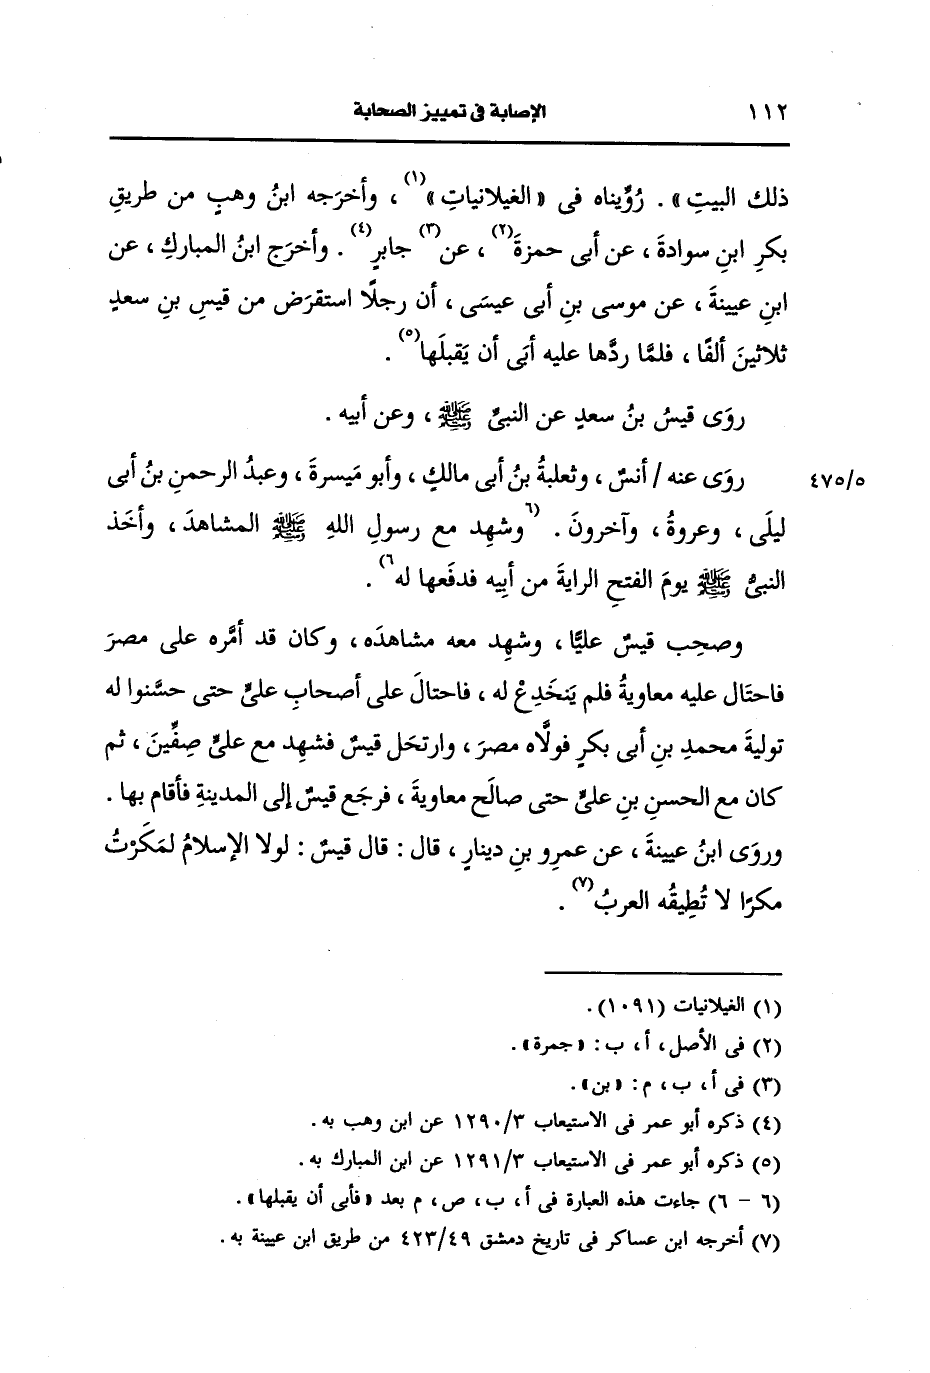 ١١٢ الإصابة فى تمييز الصحابة
ذلك البيتِ» . رُوِّيناه فى «الغيلانياتِ»(١) ، وأخرَجه ابنُ وهبٍ من طريقِ
بكرِ ابنِ سوادةَ ، عن أبى حمزةَ(٢) ، عن(٣) جابرٍ(٤) . وأخرَج ابنُ المباركِ ، عن
ابنِ عيينةَ ، عن موسى بنِ أبى عيسَى ، أن رجلًا استقرَض من قيسِ بنِ سعدٍ
ثلاثينَ ألفًا ، فلمَّا ردَّها عليه أبَى أن يَقبلَها(٥) .
روَى قيسُ بنُ سعدٍ عن النبىِّ ﷺ ، وعن أبيه .
٤٧٥/٥ روَى عنه / أنسٌ ، وثعلبةُ بنُ أبى مالكٍ ، وأبو مَيسرةَ ، وعبدُ الرحمنِ بنُ أبى
ليلَى ، وعروةُ ، وآخرونَ . (٦وشهِد مع رسولِ اللهِ ﷺ المشاهدَ ، وأخَذ
النبىُّ ﷺ يومَ الفتحِ الرايةَ من أبِيه فدفَعها له٦) .
وصحِب قيسٌ عليًّا ، وشهِد معه مشاهدَه ، وكان قد أمَّره على مصرَ
فاحتَال عليه معاويةُ فلم يَنخَدِعْ له ، فاحتالَ على أصحابِ علىٍّ حتى حسَّنوا له
توليةَ محمدِ بنِ أبى بكرٍ فولَّاه مصرَ ، وارتحَل قيسٌ فشهِد مع علىٍّ صِفِّينَ ، ثم
كان مع الحسنِ بنِ علىٍّ حتى صالَح معاويةَ ، فرجَع قيسٌ إلى المدينةِ فأقام بها .
وروَى ابنُ عيينةَ ، عن عمرِو بنِ دينارٍ ، قال : قال قيسٌ : لولا الإسلامُ لمَكَرْتُ
مكرًا لا تُطِيقُه العربُ(٧) .
(١) الغيلانيات (١٠٩١) .
(٢) فى الأصل ، أ ، ب : «جمرة» .
(٣) فى أ ، ب ، م : «بن» .
(٤) ذكره أبو عمر فى الاستيعاب ١٢٩٠/٣ عن ابن وهب به .
(٥) ذكره أبو عمر فى الاستيعاب ١٢٩١/٣ عن ابن المبارك به .
(٦ - ٦) جاءت هذه العبارة فى أ ، ب ، ص ، م بعد «فأبى أن يقبلها» .
(٧) أخرجه ابن عساكر فى تاريخ دمشق ٤٢٣/٤٩ من طريق ابن عيينة به .